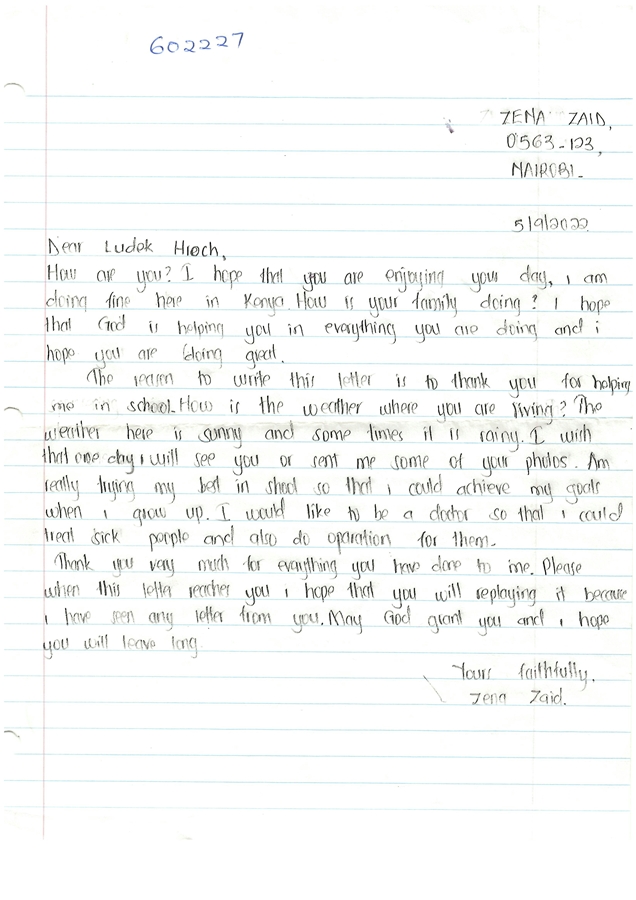 602227
ZENA ZAID,
0563-123,
NAIROBI-
5/9/2022
Dear Ludek Hroch,
How are you? I hope that you are enjoying your day, i am
doing fine here in Kenya. How is your family doing? I hope
that God is helping you in everything you are doing and i
hope you are doing great.
The reason to write this letter is to thank you for helping
me in school. How is the weather where you are living? The
weather here is sunny and some times it is rainy. I wish
that one day i will see you or sent me some of your photos. Am
really trying my best in shool so that i could achieve my goals
when i grow up. I would like to be a doctor so that i could
treat sick people and also do oparation for them-
Thank you vary much for everything you have done to me. Please
when this letter reacher you i hope that you will replaying it because
i have seen any letter from you. May God grant you and i hope
you will leave long
Yours faithfully.
Zena Zaid.